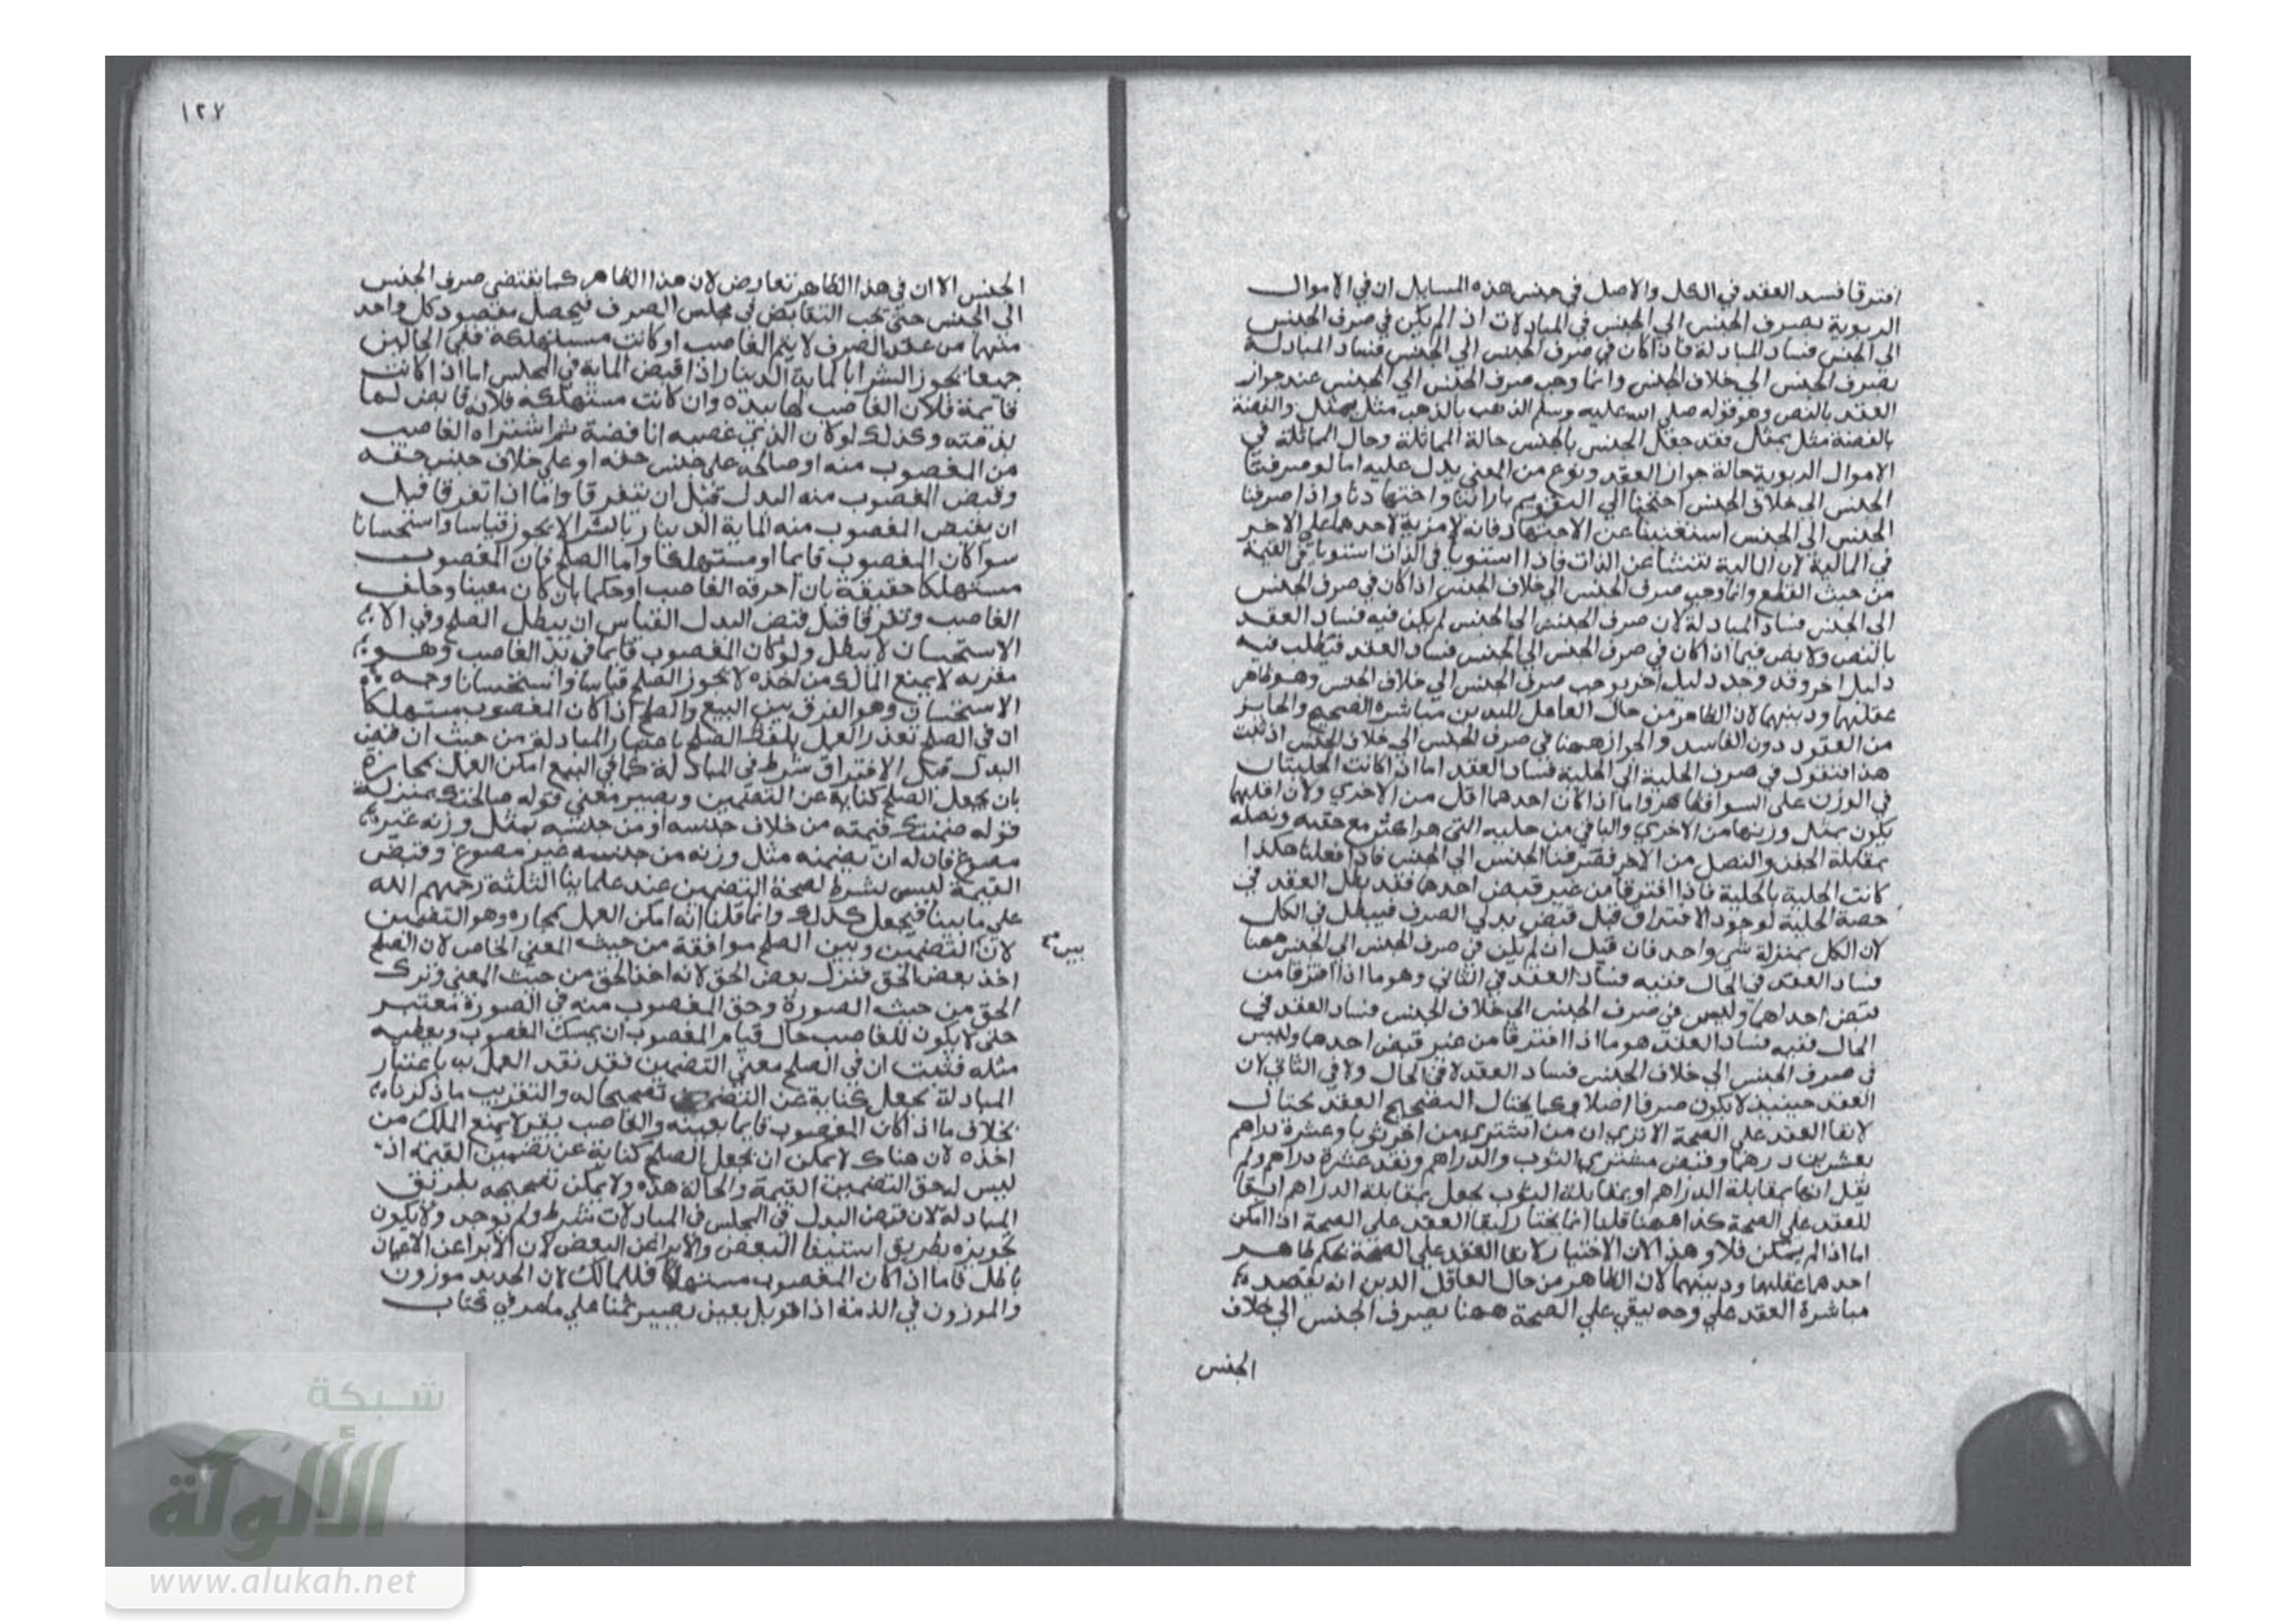 افترقا فسد العقد في الكل والاصل في جنس هذه المسايل ان في الاموال
الربوية يصرف الجنس الي الجنس في المبادلات اذا لم يكن في صرف الجنس
الي الجنس فساد المبادلة فاذا كان في صرف الجنس الي الجنس فساد المبادلة
يصرف الجنس الي خلاف الجنس وانما وجب صرف الجنس الي الجنس عند جواز
العقد بالنص وهو قوله صلي الله عليه وسلم الذهب بالذهب مثل بمثل والفضة
بالفضة مثل بمثل فقد جعل الجنس بالجنس حالة المماثلة وحال المماثلة في
الاموال الربوية حالة جواز العقد ونوع من المعني يدل عليه اما لو صرفنا
الجنس الي خلاف الجنس احتجنا الي التقويم بارائنا واجتهادنا واذا صرفنا
الجنس الي الجنس استغنينا عن الاجتهاد فانه لا مزية لاحدهما علي الاخر
في المالية لان المالية تنشا عن الذات فاذا استويا في الذات استويا في القيمة
من حيث القطع وانما وجب صرف الجنس الي خلاف الجنس اذا كان في صرف الجنس
الي الجنس فساد المبادلة لان صرف الجنس الي الجنس لم يكن فيه فساد العقد
بالنص ولا نص فيما اذا كان في صرف الجنس الي الجنس فساد العقد فيطلب فيه
دليل اخر وقد وجد دليل اخر يوجب صرف الجنس الي خلاف الجنس وهو ظاهر
عقلهما ودينهما لان الظاهر من حال العاقل المتدين مباشرة الصحيح والجايز
من العقود دون الفاسد والجواز ههنا في صرف الجنس الي خلاف الجنس اذا ثبت
هذا فنقول في صرف الحلية الي الحلية فساد العقد اما اذا كانت الحليتان
في الوزن علي السوا فظاهر واما اذا كان احدهما اقل من الاخري ولان اقلهما
يكون بمثل وزنها من الاخري والباقي من حلية التي هو اكثر مع حقيه ونصله
بمقابلة الجفن والنصل من الاخر فصرفنا الجنس الي الجنس فاذا فعلنا هكذا
كانت الحلية بالحلية فاذا افترقا من غير قبض احدهما فقد بطل العقد في
حصة الحلية لوجود الافتراق قبل قبض بدلي الصرف فيبطل في الكل
لان الكل بمنزلة شي واحد فان قيل ان لم يكن في صرف الجنس الي الجنس ههنا
فساد العقد في الحال ففيه فساد العقد في الثاني وهو ما اذا افترقا من
قبض احداهما وليس في صرف الجنس الي خلاف الجنس فساد العقد في
الحال ففيه فساد العقد هو ما اذا افترقا من غير قبض احدهما وليس
في صرف الجنس الي خلاف الجنس فساد العقد لا في الحال ولا في الثاني لان
العقد حينيذ لا يكون صرفا اصلا وكما يحتال التصحيح العقد يحتال
لابقا العقد علي الصحة الا تري ان من اشتري من اخر ثوبا وعشرة دراهم
بعشرين درهما وقبض مشتري الثوب والدراهم ونقد عشرة دراهم ولم
يقل انها بمقابلة الدراهم او بمقابلة الثوب يجعل بمقابلة الدراهم ابقا
للعقد علي الصحة كذا ههنا قلنا انما يحتال لابقا العقد علي الصحة اذا امكن
اما اذا لم يمكن فلا وهذا لان الاحتيال لابقا العقد علي الصحة بحكم ظاهر
احدهما عقلهما ودينهما لان الظاهر من حال العاقل الدين انه يقصد
مباشرة العقد علي وجه يبقي علي الصحة ههنا يصرف الجنس الي خلاف
الجنس
١٢٧
الجنس الا ان في هذا الظاهر تعارض لان هذا الظاهر كما يقتضي صرف الجنس
الي الجنس حتي يجب التقابض في مجلس الصرف فيحصل مقصود كل واحد
منهما من عقد الصرف لا يتم الغاصب او كانت مستهلكة ففي الحالين
جميعا يجوز الشرا بالماية الدينار اذا قبض الماية في المجلس اما اذا كانت
قايمة فلان الغاصب لها بيده وان كانت مستهلكة فلانه قابض لها
بذمته وكذلك لو كان الذي غصبه انا فضة ثم اشتراه الغاصب
من المغصوب منه او صالحه علي جنس حقه او علي خلاف جنس حقه
وقبض المغصوب منه البدل قبل ان يتفرقا واما اذا تفرقا قبل
ان يقبض المغصوب منه الماية الدينار بالشرا لا يجوز قياسا واستحسانا
سوا كان المغصوب قايما او مستهلكا واما الصلح فان المغصوب
مستهلكا حقيقة بان احرقه الغاصب او حكما بان كان معينا وحلف
الغاصب وتفرقا قبل قبض البدل القياس ان يبطل الصلح وفي الا
الاستحسان لا يبطل ولو كان المغصوب قايما في يد الغاصب وهو
مقر به لا يمنع المالك من اخذه لا يجوز الصلح قياسا واستحسانا وجه
الاستحسان وهو الفرق بين البيع والصلح اذا كان المغصوب مستهلكا
ان في الصلح تعذر العمل بلفظ الصلح باعتبار المبادلة من حيث ان قبض
البدل قبل الافتراق شرط في المبادلة كما في البيع امكن العمل بمجازه
بان يجعل الصلح كناية عن التضمين ويصير معني قوله صالحتك بمنزلة
قوله ضمنتك قيمته من خلاف جنسه او من جنسه بمثل وزنه غير
مصوغ فان له ان يضمنه مثل وزنه من جنسه غير مصوغ وقبض
القيمة ليس بشرط لصحة التضمين عند علماينا الثلثة رحمهم الله
علي ما بينا فيجعل كذلك وانما قلنا انه امكن العمل بمجازه وهو التضمين
لان التضمين وبين الصلح موافقة من حيث المعني الخاص لان الصلح
بين
اخذ بعض الحق فنزل بعض الحق لانه اخذ الحق من حيث المعني وترك
الحق من حيث الصورة وحق المغصوب منه في الصورة معتبر
حتي لا يكون للغاصب حال قيام المغصوب ان يمسك المغصوب ويعطيه
مثله فثبت ان في الصلح معني التضمين فقد نقد العمل به باعتبار
المبادلة يجعل كناية عن التضمين تصحيحا له والتقريب ما ذكرناه
بخلاف ما اذا كان المغصوب قايما بعينه والغاصب يقر لا يمنع الملك من
اخذه لان هناك لا يمكن ان يجعل الصلح كناية عن تضمين القيمة اذ
ليس له حق التضمين القيمة والحالة هذه ولا يمكن تصحيحه بطريق
المبادلة لان قبض البدل في المجلس في المبادلات شرط ولم يوجد ولا يكون
تجويزه بطريق استيفا البعض والابرا عن البعض لان الابرا عن الاعيان
باطل فاما اذا كان المغصوب مستهلكا فللمالك لان الحديد موزون
والموزون في الذمة اذا قوبل بعين يصير ثمنا علي ما مر في كتاب
شبكة
الألوكة
www.alukah.net